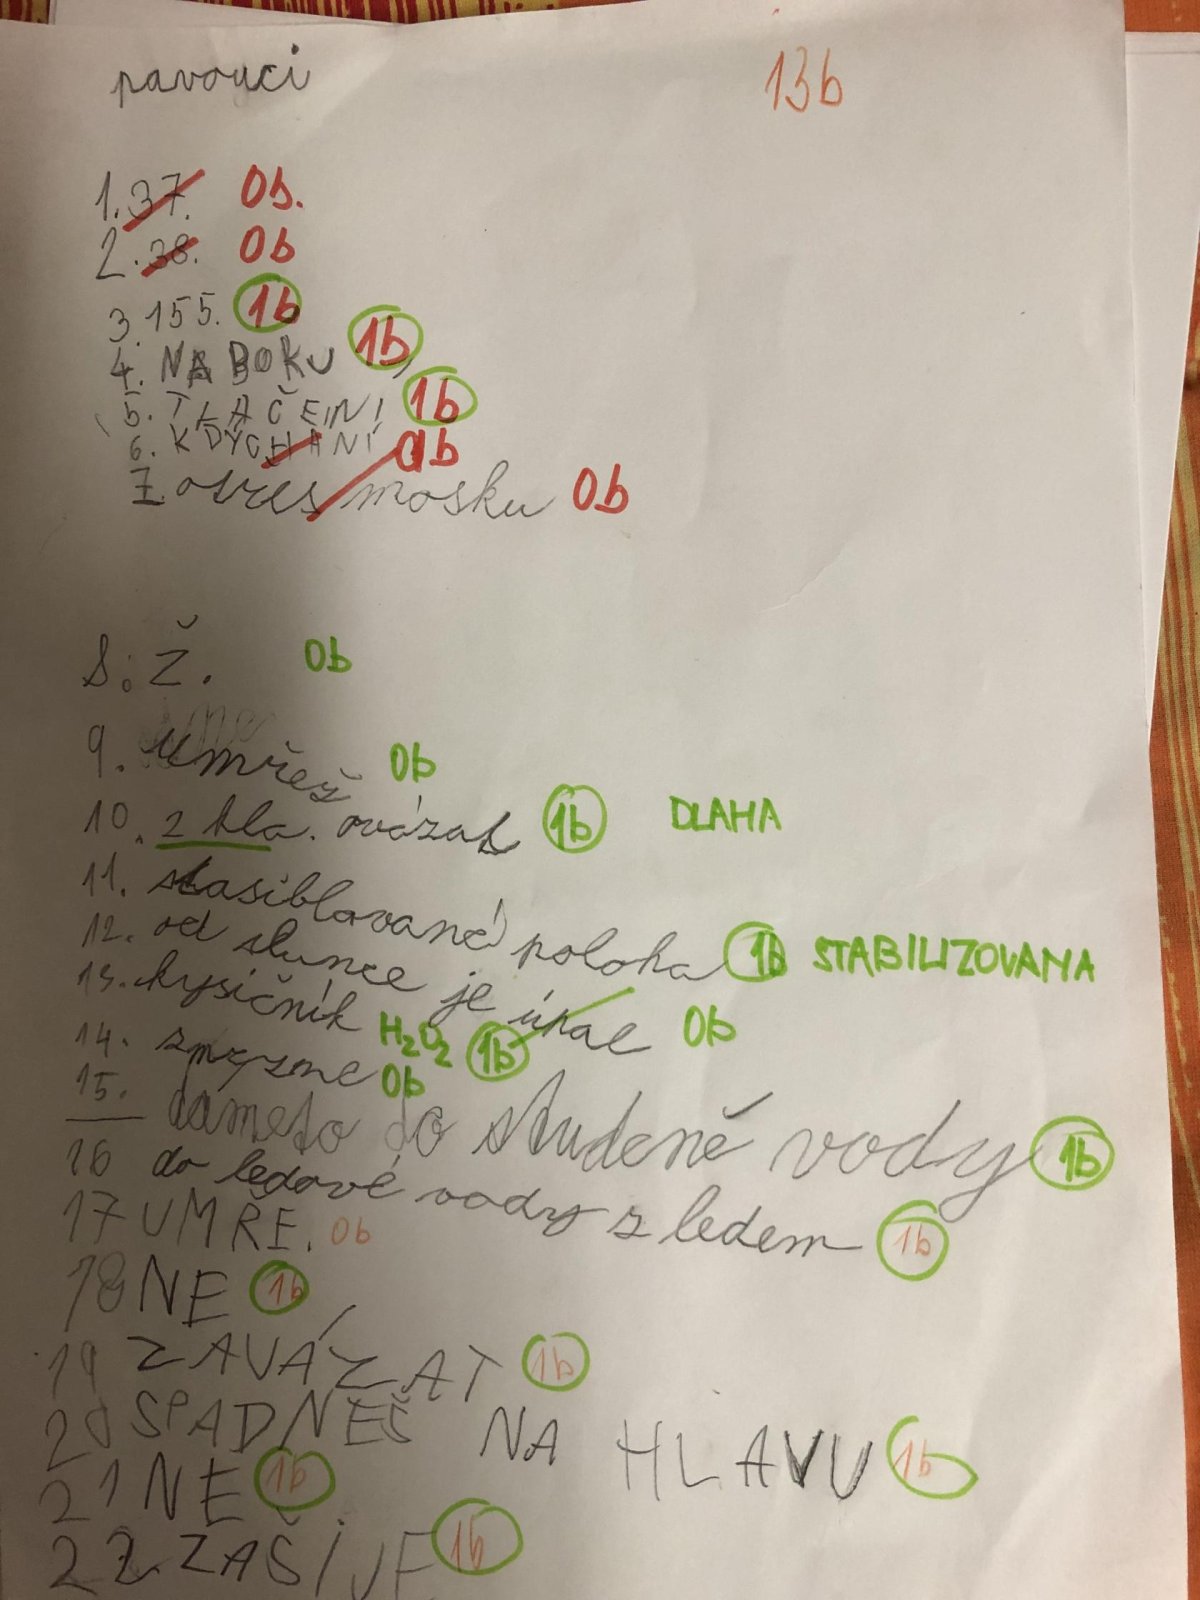 pavouci 13b
1. 37. 0b.
2. 38. 0b
3. 155. 1b
4. NA BOKU 1b
5. TLAČENÍ 1b
6. K DÝCHANÍ 0b
7 otřes mosku 0b
8. Ž. 0b
9. umřeš 0b
10. z kla. ovázat 1b DLAHA
11. stasiblované poloha 1b STABILIZOVANA
12. od slunce je úpal 0b
13. kysičník H2O2 1b
14. zmrzne 0b
15. dámeto do studené vody 1b
16 do ledové vody z ledem 1b
17 UMŘE. 0b
18 NE 1b
19 ZAVÁZAT 1b
20 SPADNEŠ NA HLAVU 1b
21 NE 1b
22. ZAŠIJE 1b